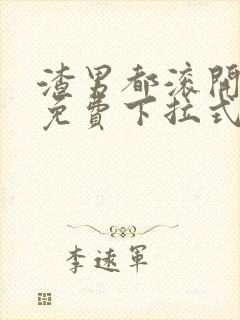 渣男都滚開
免費下拉式
李遠軍